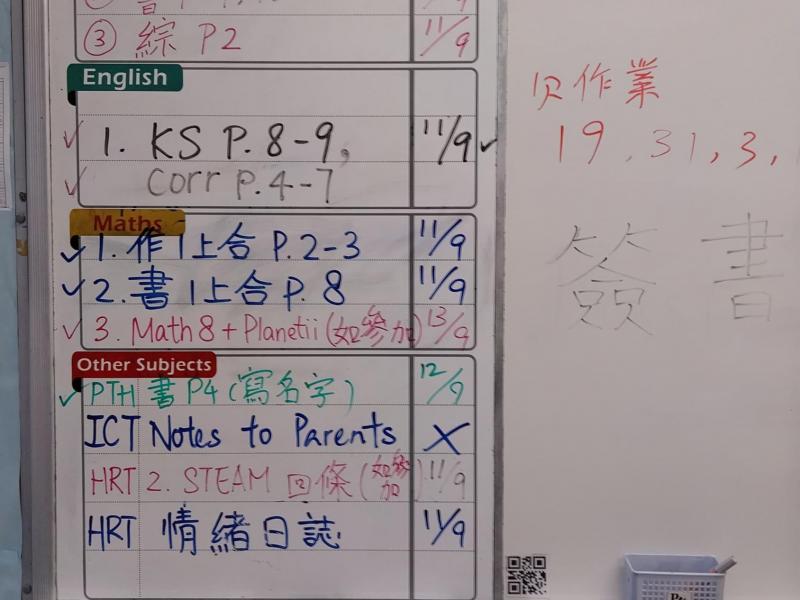 ③ 綜 P2 11/9
English
1. KS P. 8-9, 11/9
Corr P. 4-7
Maths
1. 作 1上合 P. 2-3 11/9
2. 書 1上合 P. 8 11/9
3. Math 8 + Planetii (如參加) 13/9
Other Subjects
PTH 書 P4 (寫名字) 12/9
ICT Notes to Parents X
HRT 2. STEAM 回條 (如參加) 11/9
HRT 情緒日誌 11/9
欠作業
19, 31, 3,
簽 書